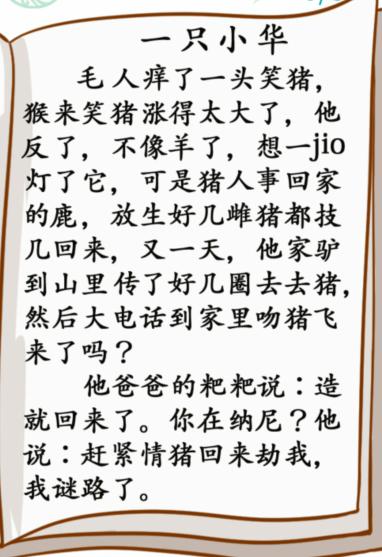 一只小华
毛人痒了一头笑猪，
猴来笑猪涨得太大了，他
反了，不像羊了，想一jio
灯了它，可是猪人事回家
的鹿，放生好几雌猪都技
几回来，又一天，他家驴
到山里传了好几圈去去猪，
然后大电话到家里吻猪飞
来了吗？
他爸爸的粑粑说：造
就回来了。你在纳尼？他
说：赶紧情猪回来劫我，
我谜路了。